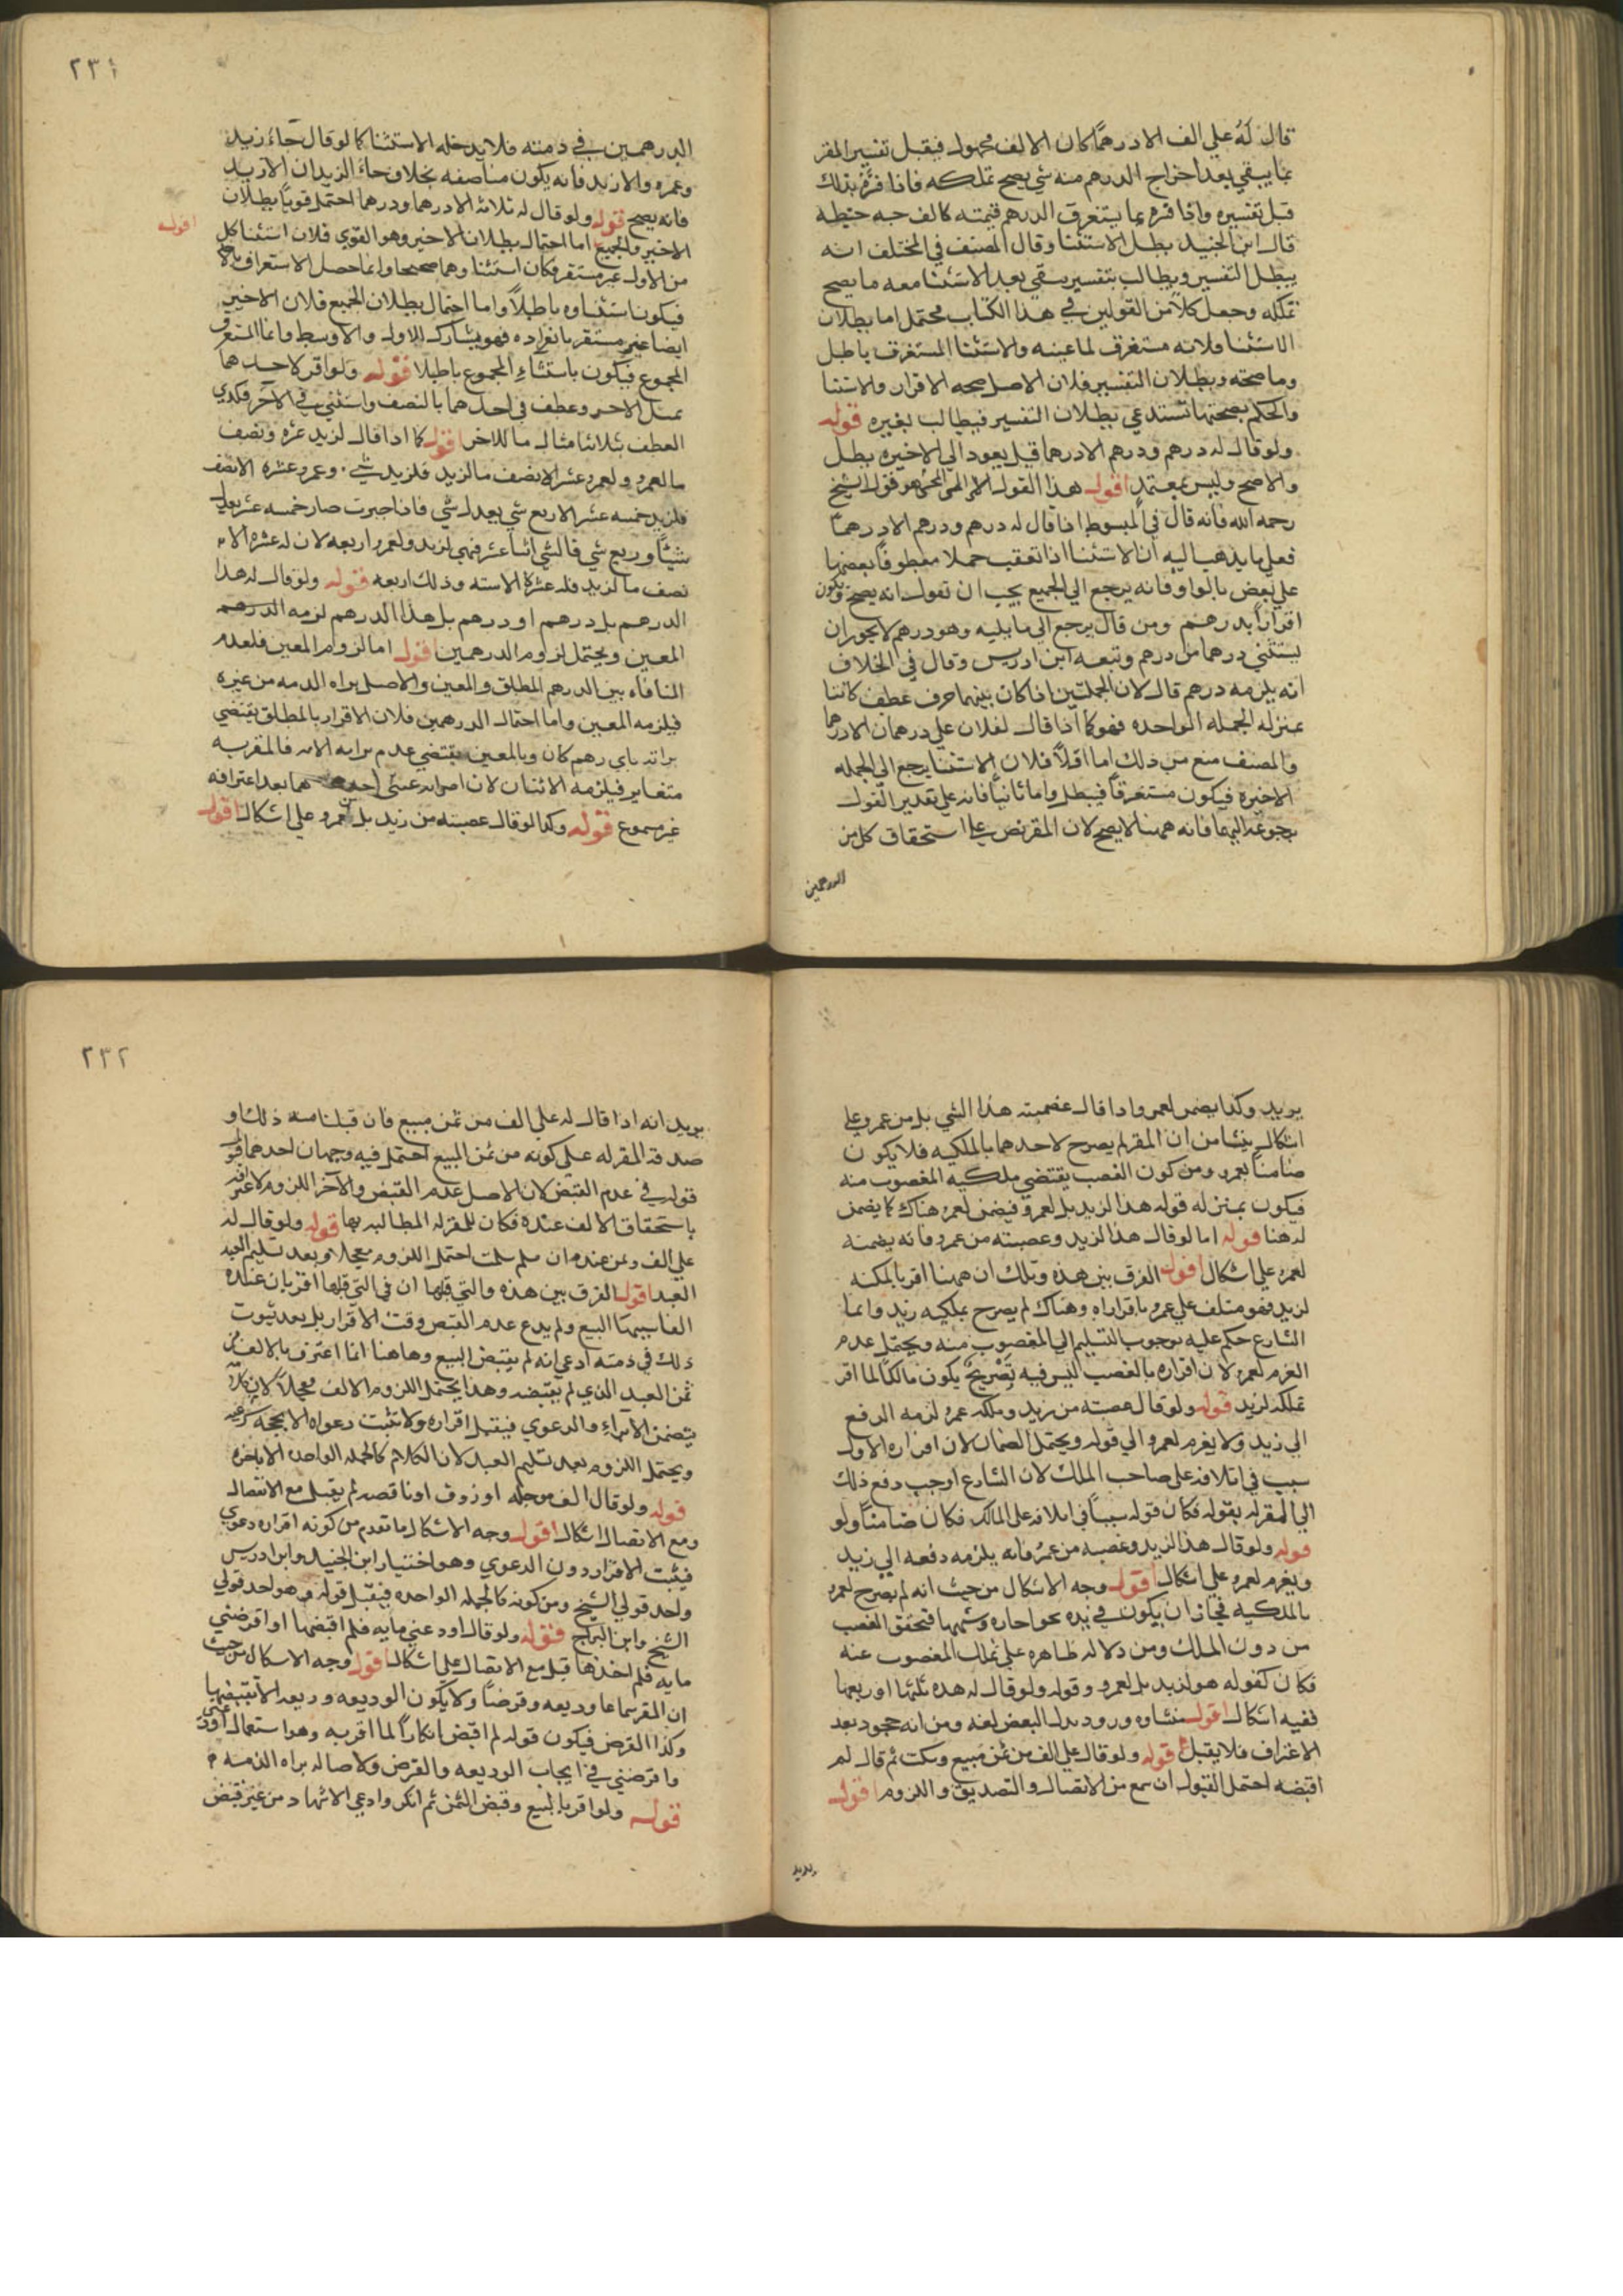 قال له علي الف الا درهما كان الالف مجهولا فيقبل تفسير المقر
بما يبقي بعد اخراج الدرهم منه شي يصح تملكه فاذا فسره بذلك
قبل تفسيره واذا فسره بما يستغرق الدرهم قيمته كالف حبه حنطه
قال ابن الجنيد بطل الاستثنا وقال المصنف في المختلف انه
يبطل التفسير ويطالب بتفسير يبقي بعد الاستثنا معه ما يصح
تملكه وجعل كلا من القولين في هذا الكتاب محتمل اما بطلان
الاستثنا فلانه مستغرق لما عينه والاستثنا المستغرق باطل
وما صحته وبطلان التفسير فلان الاصل صحه الاقرار والاستثنا
والحكم بصحتهما تستدعي بطلان التفسير فيطالب بغيره قوله
ولو قال له درهم ودرهم الا درهما قيل يعود الي الاخيره بطل
والا صح وليس بمعتمد اقول هذا القول هو قول الشيخ
رحمه الله فانه قال في المبسوط اذا قال له درهم ودرهم الا درهما
فعلي ما يذهب اليه ان الاستثنا اذا تعقب جملا معطوفا بعضها
علي بعض بالواو فانه يرجع الي الجميع يجب ان تقول انه يصح ويكون
اقرارا بدرهم ومن قال يرجع الي ما يليه وهو درهم لا يجوز ان
يستثني درهما من درهم وتبعه ابن ادريس وقال في الخلاف
انه يلزمه درهم قال لان الجملتين اذا كان بينهما حرف عطف كانتا
بمنزله الجمله الواحده فهو كما اذا قال لفلان علي درهمان الا درهما
والمصنف منع من ذلك اما اولا فلان الاستثنا يرجع الي الجمله
الاخيره فيكون مستغرقا فيبطل واما ثانيا فانه علي تقدير القول
برجوعه اليهما فانه ههنا لا يصح لان المقر نص علي استحقاق كل من
الدرهمين
٢٣١
الدرهمين في ذمته فلا يدخله الاستثنا كما لو قال جاء زيد
وعمرو الا زيد فانه يكون مناقضه بخلاف جاء الزيدان الا زيد
فانه يصح قوله ولو قال له ثلاثه الا درهما ودرهما احتمل قويا بطلان
اقول
الاخير والجميع اما احتمال بطلان الاخير وهو القوي فلان استثنا كل
من الاول غير مستغرق فكان استثناوهما صحيحا وانما حصل الاستغراق بالاخير
فيكون استثناوه باطلا واما احتمال بطلان الجميع فلان الاخير
ايضا غير مستغرق بانفراده فهو يشارك للاول والاوسط وانما المستغرق
المجموع فيكون باستثناء المجموع باطلا قوله ولو اقر لاحدهما
بمثل الاخر وعطف في احدهما بالنصف واستثني في الاخر فكذي
العطف بثلاثا مثال ما للاخر اقول كما اذا قال لزيد عشره ونصف
ما لعمرو ولعمرو عشره الا نصف ما لزيد فلزيد شي وعمرو عشره الا نصف
فلزيد خمسه عشر الا ربع شي يعدل شي فاذا جبرت صار خمسه عشر يعدل
شيئا وربع شي فالشي اثنا عشر فهي لزيد ولعمرو اربعه لان له عشره الا
نصف ما لزيد فله عشره الا سته وذلك اربعه قوله ولو قال له هذا
الدرهم بل درهم او درهم بل هذا الدرهم لزمه الدرهم
المعين ويحتمل لزوم الدرهمين اقول اما لزوم المعين فلعدم
المنافاه بين الدرهم المطلق والمعين والاصل براه الذمه من غيره
فيلزمه المعين واما احتمال الدرهمين فلان الاقرار بالمطلق يقتضي
براته باي درهم كان وبالمعين يقتضي عدم برايه الا به فالمقر به
متغاير فيلزمه الاثنان لان اضرابه عن احدهما بعد اعترافه
غير مسموع قوله وكذا لو قال غصبته من زيد بل من عمرو علي اشكال اقول
يريد وكذا يضمن لعمرو اذا قال غصبته هذا الشي بل من عمرو علي
اشكال ينشا من ان المقر لم يصرح لاحدهما بالملكيه فلا يكون
ضامنا لعمرو ومن كون الغصب يقتضي ملكيه المغصوب منه
فيكون بمنزله قوله هذا لزيد بل لعمرو فيضمن لعمرو هناك كما يضمن
له هنا قوله اما لو قال هذا لزيد وغصبته من عمرو فانه يضمنه
لعمرو علي اشكال اقول الفرق بين هذه وتلك ان ههنا اقر بالملكيه
لزيد فهو متلف علي عمرو باقراره وهناك لم يصرح بملكيه زيد وانما
الشارع حكم عليه بوجوب التسليم الي المغصوب منه ويحتمل عدم
الغرم لعمرو لان اقراره بالغصب ليس فيه تصريح يكون مالكا لما اقر
تملكه لزيد قوله ولو قال غصبته من زيد وملكه عمرو لزمه الدفع
الي زيد ولا يغرم لعمرو الي قوله ويحتمل الضمان لان اقراره الاول
سبب في اتلافه علي صاحب الملك لان الشارع اوجب دفع ذلك
الي المقر له بقوله فكان قوله سببا في اتلافه علي المالك فكان ضامنا ولو
قوله ولو قال هذا لزيد وغصبه من عمرو فانه يلزمه دفعه الي زيد
ويغرم لعمرو علي اشكال اقول وجه الاشكال من حيث انه لم يصرح لعمرو
بالملكيه فجاز ان يكون في يده بحق اجاره وشبهها فتحقق الغصب
من دون الملك ومن دلاله ظاهره علي تملك المغصوب عنه
فكان كقوله هو لزيد بل لعمرو وقوله ولو قال له هذه ثلثها او ربعها
ففيه اشكال اقول منشاوه ورود بدل البعض لغه ومن انه جحود بعد
الاعتراف فلا يقبل قوله ولو قال علي الف من ثمن مبيع وسكت ثم قال لم
اقبضه احتمل القبول ان سمع من الاتصال والتصديق واللزوم اقول
يريد
٢٣٢
يريد انه اذا قال له علي الف من ثمن مبيع فان قبلنا منه ذلك او
صدقه المقر له علي كونه من ثمن المبيع احتمل فيه وجهان احدهما قبول
قوله في عدم القبض لان الاصل عدم القبض والاخر اللزوم لاعترافه
باستحقاق الالف عنده فكان للمقر له المطالبه بها قوله ولو قال له
علي الف وثمن عبد ان سلم سلمت احتمل اللزوم معجلا وبعد تسليم العبد
العبد اقول الفرق بين هذه والتي قبلها ان في التي قبلها اقر بان عنده
الفا سببها البيع ولم يدع عدم القبض وقت الاقرار بل بعد ثبوت
ذلك في ذمته ادعي انه لم يقبض المبيع وهاهنا انما اعترف بالالف من
ثمن العبد الذي لم يقبضه وهذا يحتمل اللزوم الالف معجلا لان كلامه
يتضمن الابراء والدعوي فيقبل اقراره ولا تثبت دعواه الا بحجه شرعيه
ويحتمل اللزوم بعد تسليم العبد لان الكلام كالجمله الواحده الا باخره
قوله ولو قال الف موجله او زيوف او ناقصه لم يقبل مع الانفصال
ومع الاتصال اشكال اقول وجه الاشكال ما تقدم من كونه اقراره دعوي
فيثبت الاقرار دون الدعوي وهو اختيار ابن الجنيد وابن ادريس
واحد قولي الشيخ ومن كونه كالجمله الواحده فيقبل قوله وهو احد قولي
الشيخ وابن البراج قوله ولو قال اودعني مايه فلم اقبضها او اقرضني
مايه فلم اخذها قبل مع الاتصال علي اشكال اقول وجه الاشكال من حيث
ان المقر سماها وديعه وقرضا ولا يكون الوديعه وديعه الا بقبضها
وكذا القرض فيكون قوله لم اقبض انكارا لما اقر به وهو استعمال اودعني
واقرضني في ايجاب الوديعه والقرض ولاصاله براه الذمه
قوله ولو اقر بالبيع وقبض الثمن ثم انكر وادعي الاشهاد من غير قبض